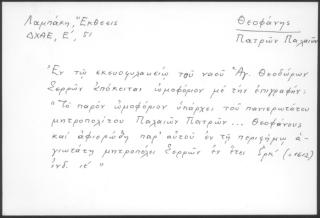 Λαμπάκη, Ἔκθεσις
ΔΧΑΕ, Ε', 51
Θεοφάνης
Πατρῶν Παλαιῶν
"Ἐν τῷ σκευοφυλακείῳ τοῦ ναοῦ Ἁγ. Θεοδώρων
Σερρῶν ἀπόκειται ὠμοφόριον μὲ τὴν ἐπιγραφήν:
"Τὸ παρὸν ὠμοφόριον ὑπάρχει τοῦ πανιερωτάτου
μητροπολίτου Παλαιῶν Πατρῶν ... Θεοφάνους
καὶ ἀφιερώθη παρ' αὐτοῦ ἐν τῇ περιφήμῳ ἁ-
γιωτάτῃ μητροπόλει Σερρῶν ἐν ἔτει ζρκ' (=1612)
ἰνδ. ιε' "